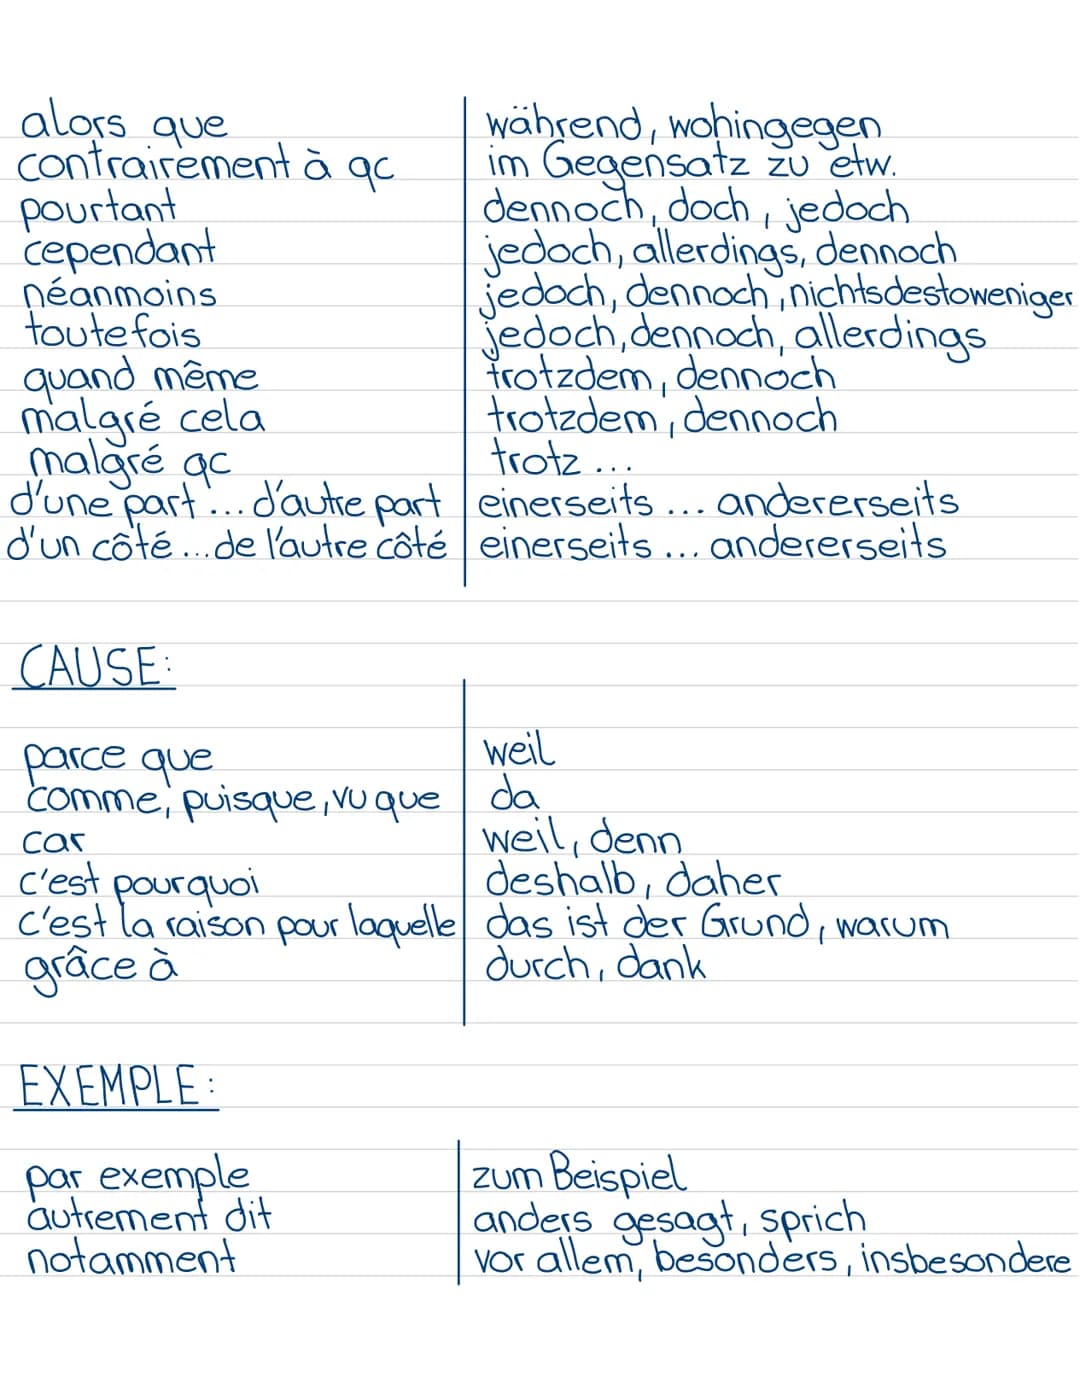 alors que während, wohingegen
contrairement à qc im Gegensatz zu etw.
pourtant dennoch, doch, jedoch
cependant jedoch, allerdings, dennoch
néanmoins jedoch, dennoch, nichtsdestoweniger
toutefois jedoch, dennoch, allerdings
quand même trotzdem, dennoch
malgré cela trotzdem, dennoch
malgré qc trotz ...
d'une part ... d'autre part einerseits ... andererseits
d'un côté ... de l'autre côté einerseits ... andererseits
CAUSE:
parce que weil
comme, puisque, vu que da
car weil, denn
c'est pourquoi deshalb, daher
c'est la raison pour laquelle das ist der Grund, warum
grâce à durch, dank
EXEMPLE:
par exemple zum Beispiel
autrement dit anders gesagt, sprich
notamment vor allem, besonders, insbesondere